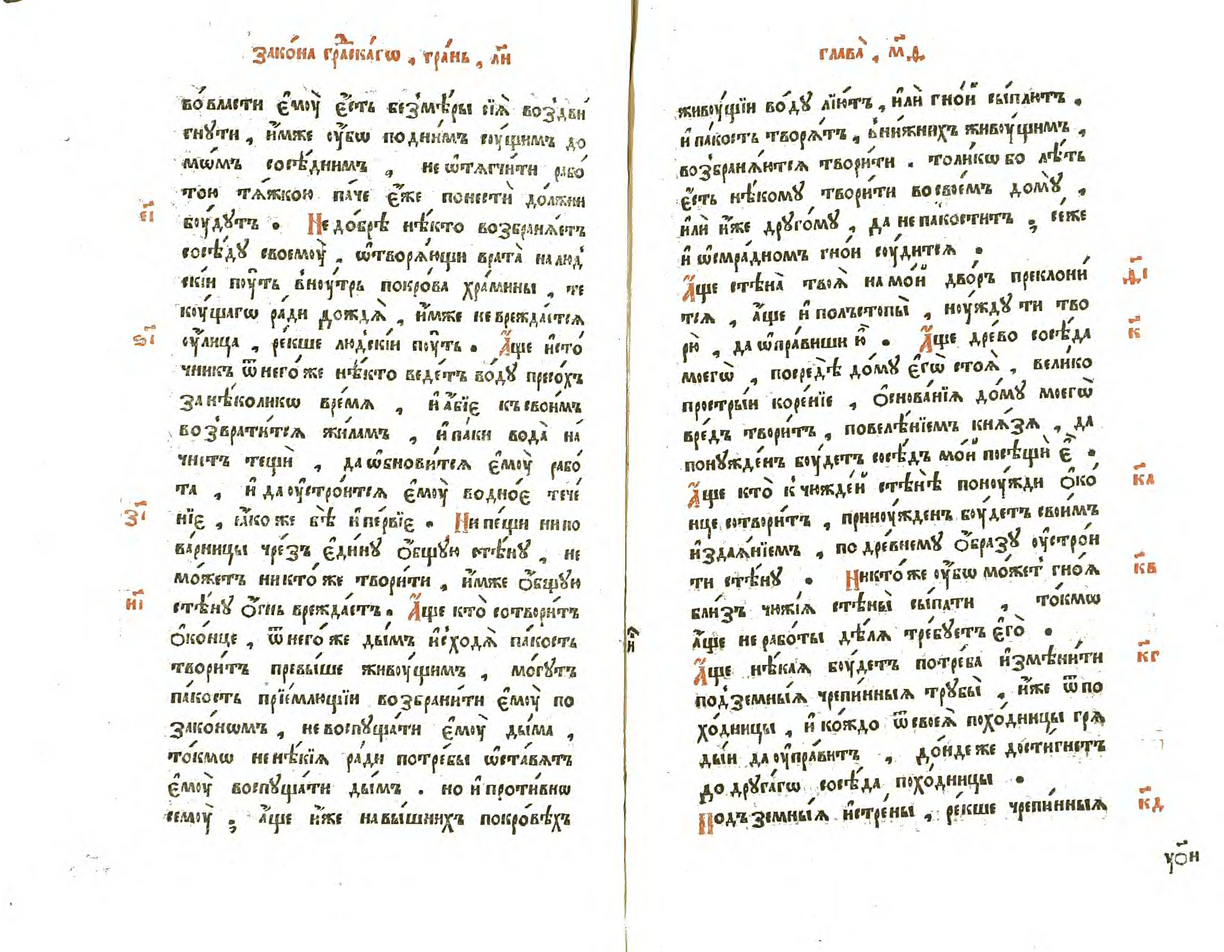 Зако́на гра́дскагѡ , гра́нь , л҃и
во́власти є҆моу̀ є҆́сть безмѣ́ры сїѧ̀ воздви́
гнути , и҆́мже оу҆́бѡ подни́мъ соу́щимъ до
мѡ́мъ сосѣ́днимъ , не ѡ҆тѧгчи́ти рабо́
тою тѧ́жкою паче є҆́же понестѝ до́лжни
є҃і
боу́дутъ . Не до́брѣ нѣ́кто возбранѧ́етъ
сосѣ́ду своемоу̀ , ѿтворѧ́ющи врата̀ на люд
скі́и поу́ть в̾ноу́трь покро́ва хра́мины , те
коу́щагѡ ра́ди дождѧ̀ , и҆́мже невреждае́тсѧ
ѕ҃і
оу҆́лица , ре́кше людскі́и поу́ть . А҆́ще и҆сто́
чникъ ѿ него́же нѣ́кто веде́тъ во́ду пресо́хъ
занѣ́коликѡ вре́мѧ , и҆ а҆́бїе къ свои́мъ
возврати́тсѧ жи́ламъ , и҆ паки вода̀ на́
чнетъ тещѝ , да ѡ҆бнови́тсѧ є҆моу̀ рабо́
та , и҆ да оу҆стро́итсѧ є҆моу̀ водно́е тече́
з҃і
нїе , ꙗ҆́ко же бѣ̀ и҆ пе́рвїе . Ни пе́щи ни по
ва́рницы чре́зъ є҆ди́ну о҆́бщую стѣ́ну , не
мо́жетъ никто́же твори́ти , и҆́мже о҆́бщую
и҃і
стѣ́ну о҆́гнь врежда́етъ . А҆́ще кто̀ сотвори́тъ
о҆ко́нце , ѿ него́же ды́мъ и҆сходѧ̀ па́кость
твори́тъ превы́ше живоу́щимъ , мо́гутъ
па́кость прїе́млющїи возбрани́ти є҆моу̀ по
зако́нѡмъ , не воспуща́ти є҆моу̀ ды́ма ,
то́кмѡ не нѣ́кїѧ ра́ди потре́бы ѡ҆ста́вѧтъ
є҆моу̀ воспуща́ти ды́мъ . но и҆ проти́внѡ
семоу̀ ; а҆́ще и҆́же на вы́шнихъ покро́вѣхъ
глава̀ , м҃ѳ .
живоу́щїи во́ду лїю́тъ , и҆лѝ гно́и сы́плютъ .
и҆ па́кость творѧ́тъ , в̾ни́жнихъ живоу́щимъ ,
возбранѧ́ютсѧ твори́ти . толи́кѡ бо лѣ́ть
є҆́сть нѣ́кому твори́ти во свое́мъ дому̀ ,
и҆лѝ и҆́же друго́му , да не па́коститъ ; се́же
и҆ ѡ҆ смра́дномъ гно́и соу́дитсѧ .
ѳ҃і
А҆́ще стѣна̀ твоѧ̀ на мо́й дво́ръ преклони́
тсѧ , а҆́ще и҆ по́лъ стопы̀ , ноу́жду ти тво
к҃
рю̀ , да ѡ҆пра́виши ю҆̀ . А҆́ще дре́во сосѣ́да
моегѡ̀ , посредѣ̀ до́му є҆гѡ̀ стоѧ̀ , вели́ко
простры́й коре́нїе , ѡ҆снова́нїѧ до́му моегѡ̀
вре́дъ твори́тъ , повелѣ́нїемъ кнѧ́зѧ , да
пону́жденъ боу́детъ сосѣ́дъ мо́й посѣщѝ є҆̀ .
к҃а
А҆́ще кто̀ к̾ чужде́й стѣнѣ̀ поноу́жди о҆ко́
нце сотвори́тъ , приноу́жденъ боу́детъ свои́мъ
и҆здаѧ́нїемъ , по дре́внему о҆́бразу оу҆стро́и
к҃в
ти стѣ́ну . Никто́же оу҆́бѡ мо́жетъ гно́ѧ
бли́зъ чюжі́ѧ стѣны̀ сы́пати , то́кмѡ
а҆́ще не рабо́ты дѣ́лѧ тре́буетъ є҆го̀ .
к҃г
А҆́ще нѣ́каѧ боу́детъ потре́ба и҆змѣни́ти
подзе́мныѧ чрепи́нныѧ трубы̀ , и҆́же ѿ по
хо́дницы , и҆ ко́ждо ѿ своеѧ̀ похо́дницы грѧ
ды́и да оу҆пра́витъ , до́ндеже дости́гнетъ
до друга́гѡ сосѣ́да похо́дницы .
к҃д
Подзе́мныѧ и҆стре́ны , ре́кше чрепи́нныѧ
уѻ҃и